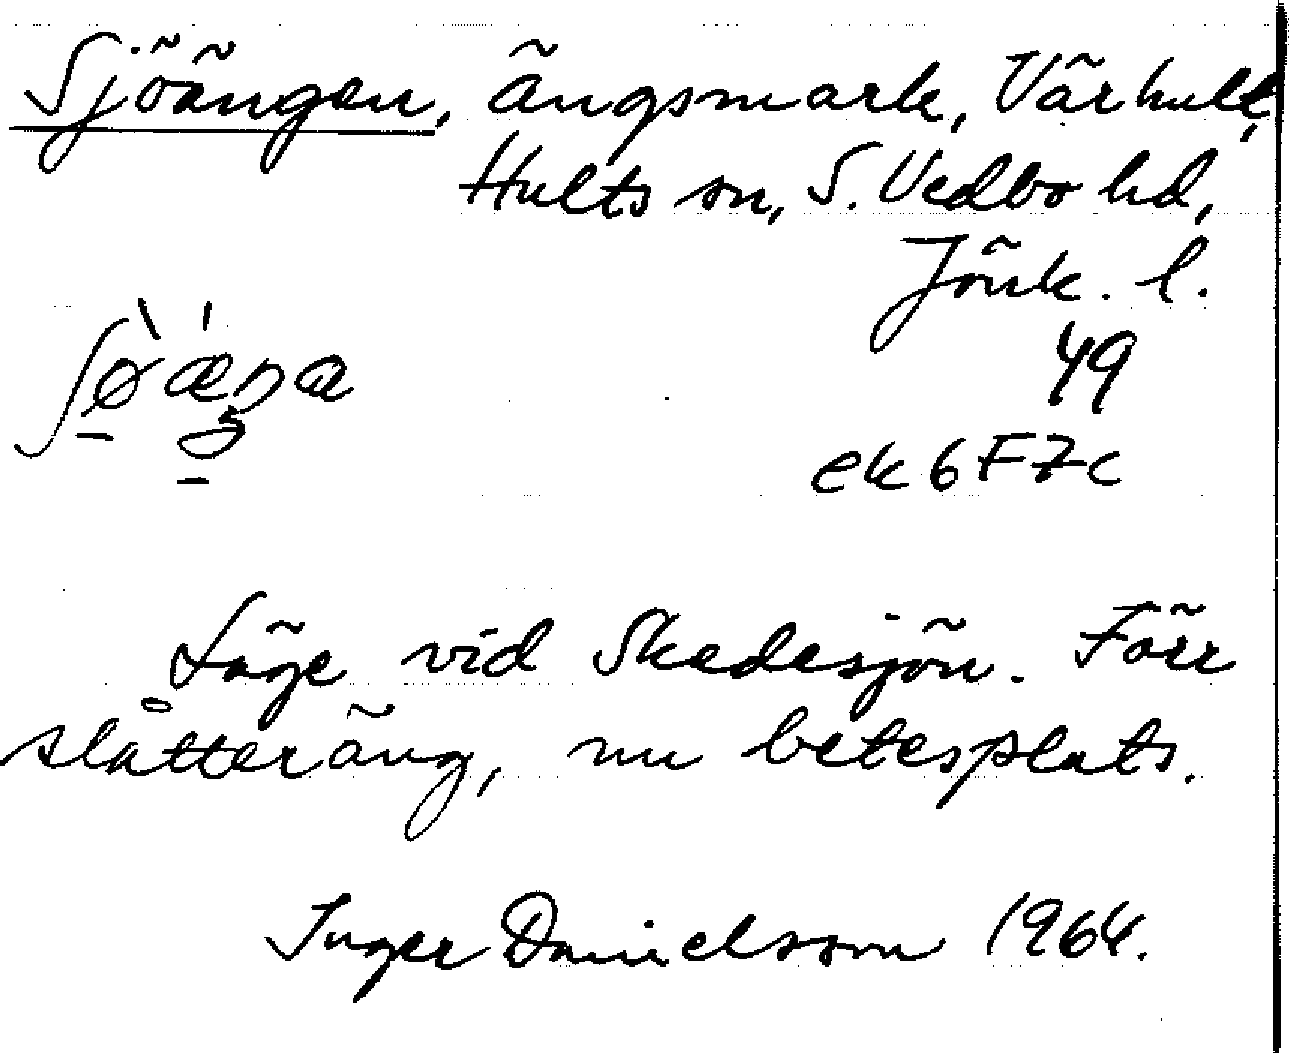 Sjöängen, ängsmark, Värhult,
Hults sn, S. Vedbo hd,
Jönk. l.
49
ek 6F7c
Läge vid Skedesjön. Förr
slåtteräng, nu betesplats.
Inger Danielsson 1964.